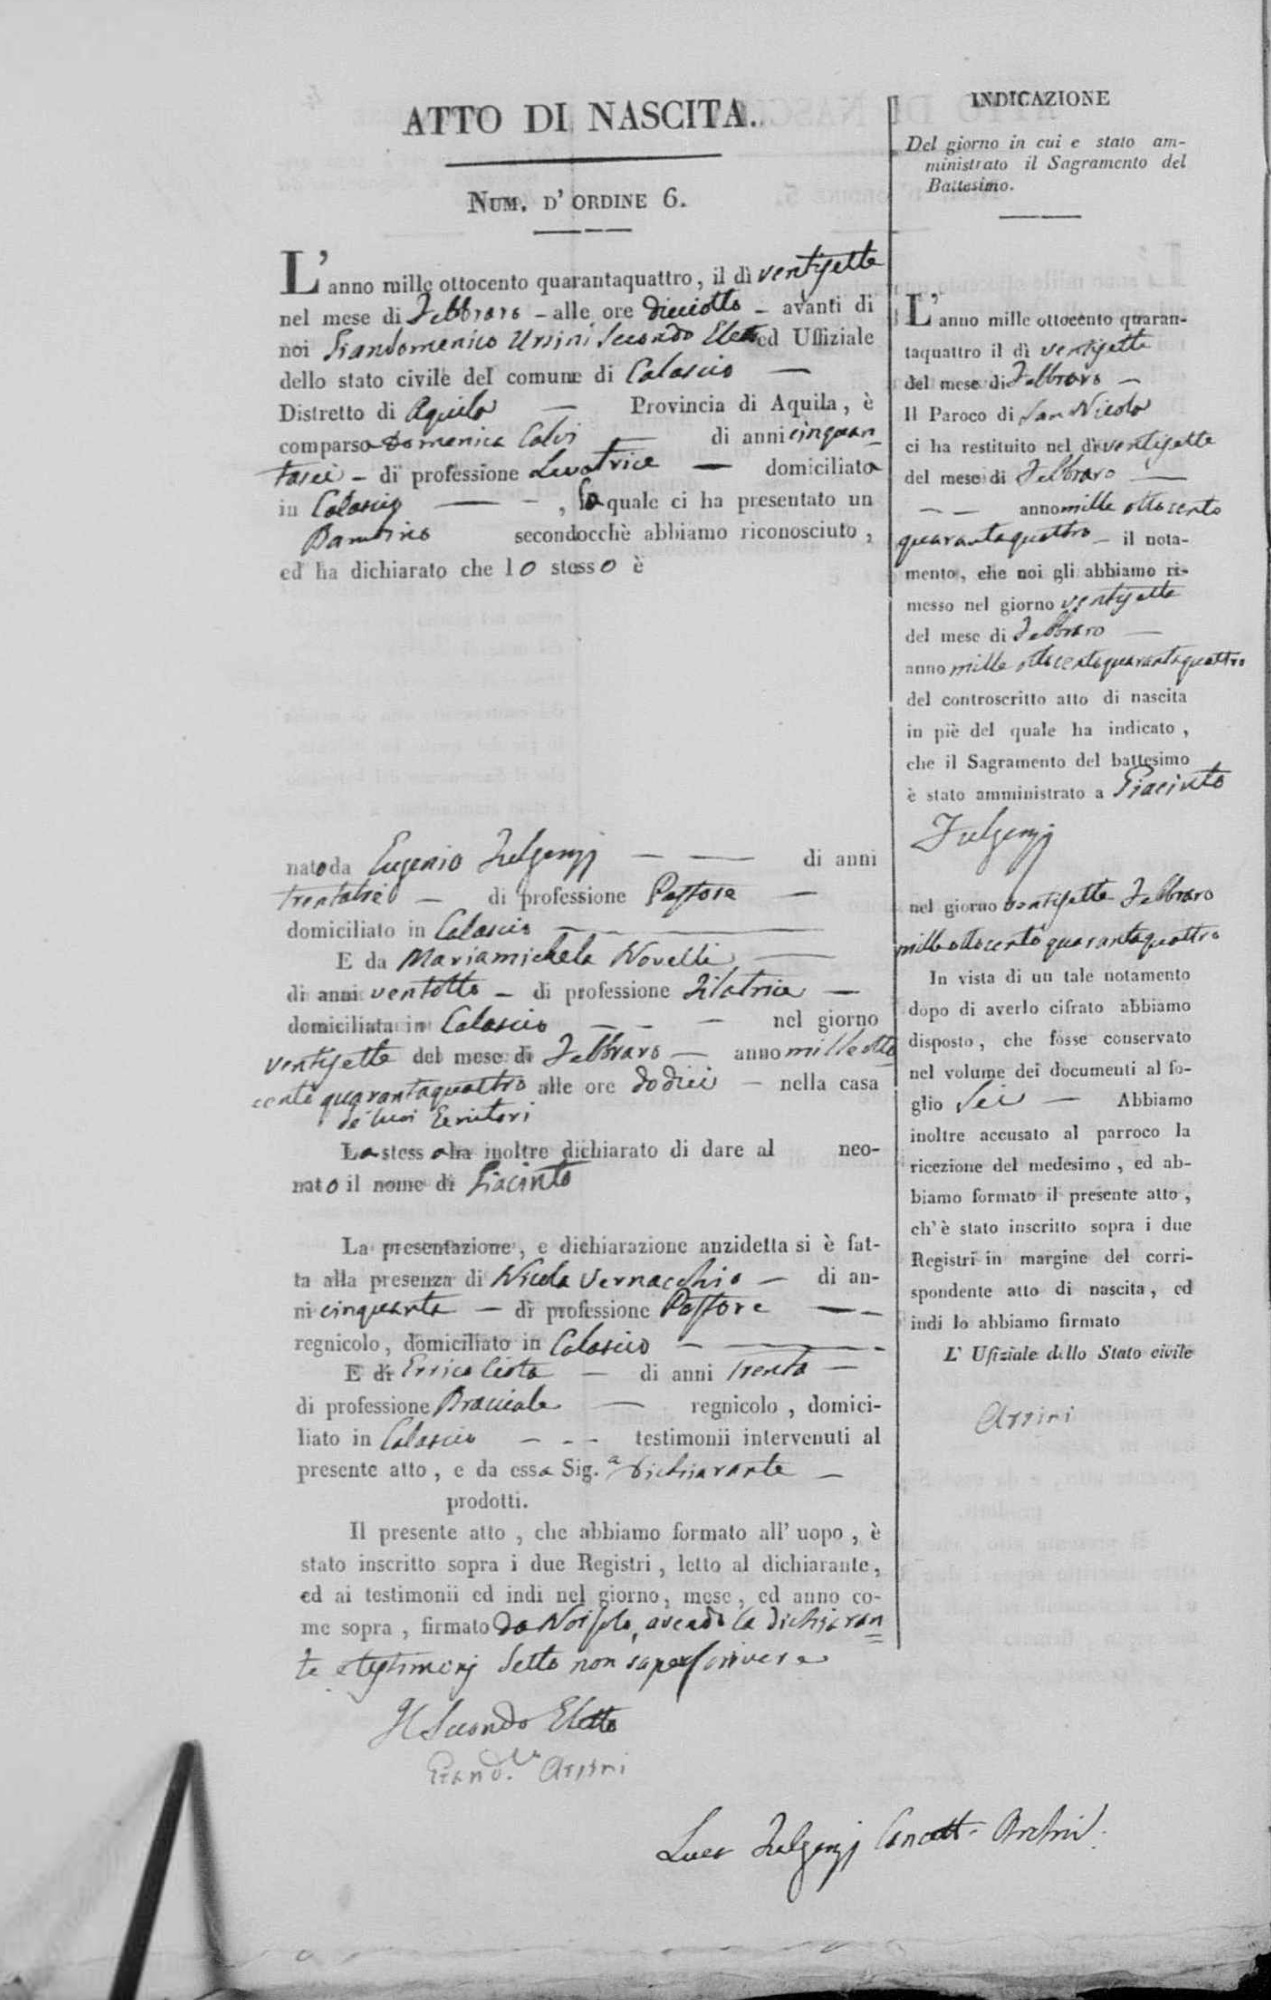 ATTO DI NASCITA.
NUM. D' ORDINE 6.
L'anno mille ottocento quarantaquattro, il dì ventisette
nel mese di Febbraro - alle ore dieciotto - avanti di
noi Giandomenico Ursini Secondo Eletto ed Uffiziale
dello stato civile del comune di Calascio —
Distretto di Aquila — Provincia di Aquila, è
comparsa Domenica Calvi di anni cinquan
tasei - di professione Levatrice — domiciliata
in Calascio — -, la quale ci ha presentato un
Bambino secondocchè abbiamo riconosciuto,
ed ha dichiarato che lo stesso è
nato da Eugenio Fulgenzj — — di anni
trentatrè - di professione Pastore —
domiciliato in Calascio —
E da Mariamichela Novelli —
di anni ventotto - di professione Filatrice —
domiciliata in Calascio — - — nel giorno
ventisette del mese di Febbraro — anno mille otto
cento quarantaquattro alle ore dodici - nella casa
de' suoi Genitori
La stessa ha inoltre dichiarato di dare al neo-
nato il nome di Giacinto
La presentazione, e dichiarazione anzidetta si è fat-
ta alla presenza di Nicola Vernacchio — di an-
ni cinquanta — di professione Pastore — -
regnicolo, domiciliato in Calascio —
E di Errico - di anni trenta —
di professione Bracciale — regnicolo, domici-
liato in Calascio - - - testimonii intervenuti al
presente atto, e da essa Sig.a Dichiarante —
prodotti.
Il presente atto, che abbiamo formato all' uopo, è
stato inscritto sopra i due Registri, letto al dichiarante,
ed ai testimonii ed indi nel giorno, mese, ed anno co-
me sopra, firmato da Noi solo, avendo la dichiaran
te e testimonj detto non saper scrivere
Il Secondo Eletto
Giand.co Ursini
Luca Fulgenzj Cancell. Archiv.
INDICAZIONE
Del giorno in cui e stato am-
ministrato il Sagramento del
Battesimo.
L'anno mille ottocento quaran-
taquattro il dì ventisette
del mese di Febbraro —
Il Paroco di San Nicola
ci ha restituito nel dì ventisette
del mese di Febbraro —
— — anno mille ottocento
quarantaquattro - il nota-
mento, che noi gli abbiamo ri-
messo nel giorno ventisette
del mese di Febbraro —
anno mille ottocentoquarantaquattro
del controscritto atto di nascita
in piè del quale ha indicato,
che il Sagramento del battesimo
è stato amministrato a Giacinto
Fulgenzj
nel giorno ventisette Febbraro
mille ottocento quarantaquattro
In vista di un tale notamento
dopo di averlo cifrato abbiamo
disposto, che fosse conservato
nel volume dei documenti al fo-
glio Sei — Abbiamo
inoltre accusato al parroco la
ricezione del medesimo, ed ab-
biamo formato il presente atto,
ch'è stato inscritto sopra i due
Registri in margine del corri-
spondente atto di nascita, ed
indi lo abbiamo firmato
L' Ufiziale dello Stato civile
Ursini